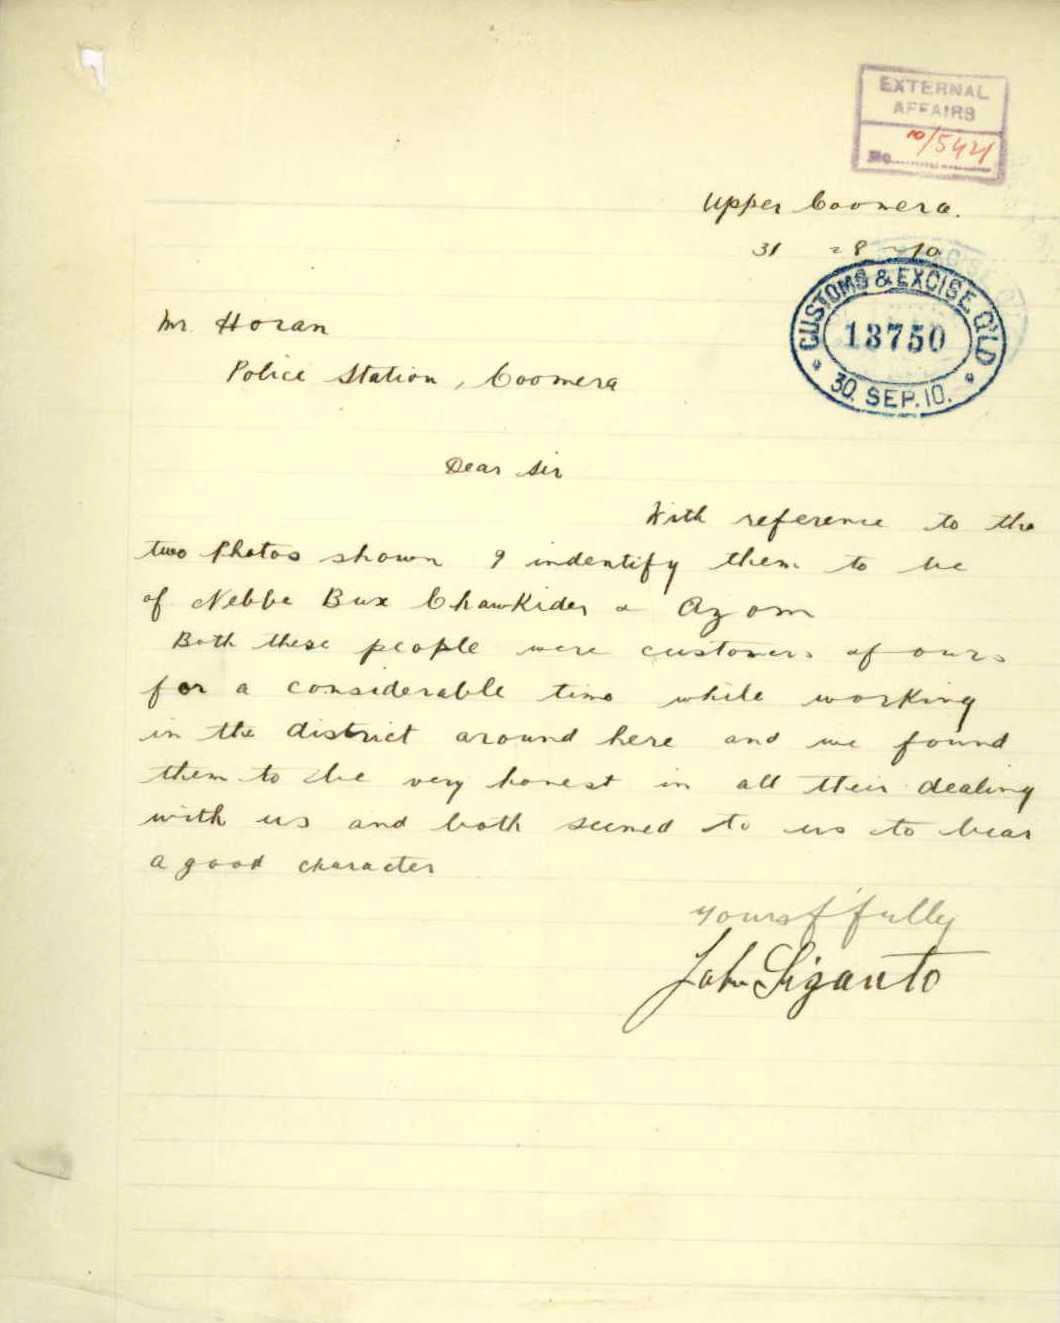 EXTERNAL
AFFAIRS
No. 10/5421
Upper Coomera.
31 - 8 - 10
CUSTOMS & EXCISE Q'LD
13750
30. SEP. 10.
Mr Horan
Police Station, Coomera
Dear Sir
With reference to the
two Photos shown I indentify them to be
of Nebbe Bux Chawkider & Azom
Both these people were customers of ours
for a considerable time while working
in the district around here and we found
them to be very honest in all their dealing
with us and both seemed to us to bear
a good character
Yours f'fully
John Siganto